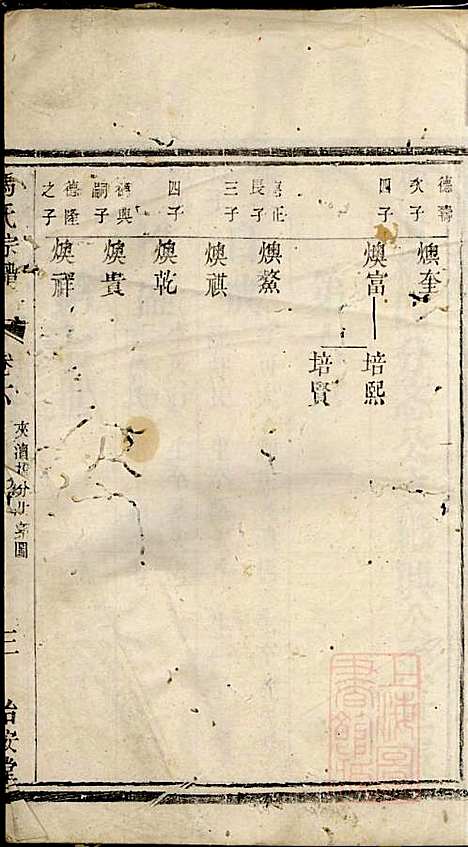 德壽
次子
煥奎
四子
煥富
培熙
培賢
長子
煥鰲
三子
煥祺
四子
煥乾
德興
嗣子
煥貴
德隆
之子
煥祥
氏宗譜
卷六
圖
三
治安堂
上海
書